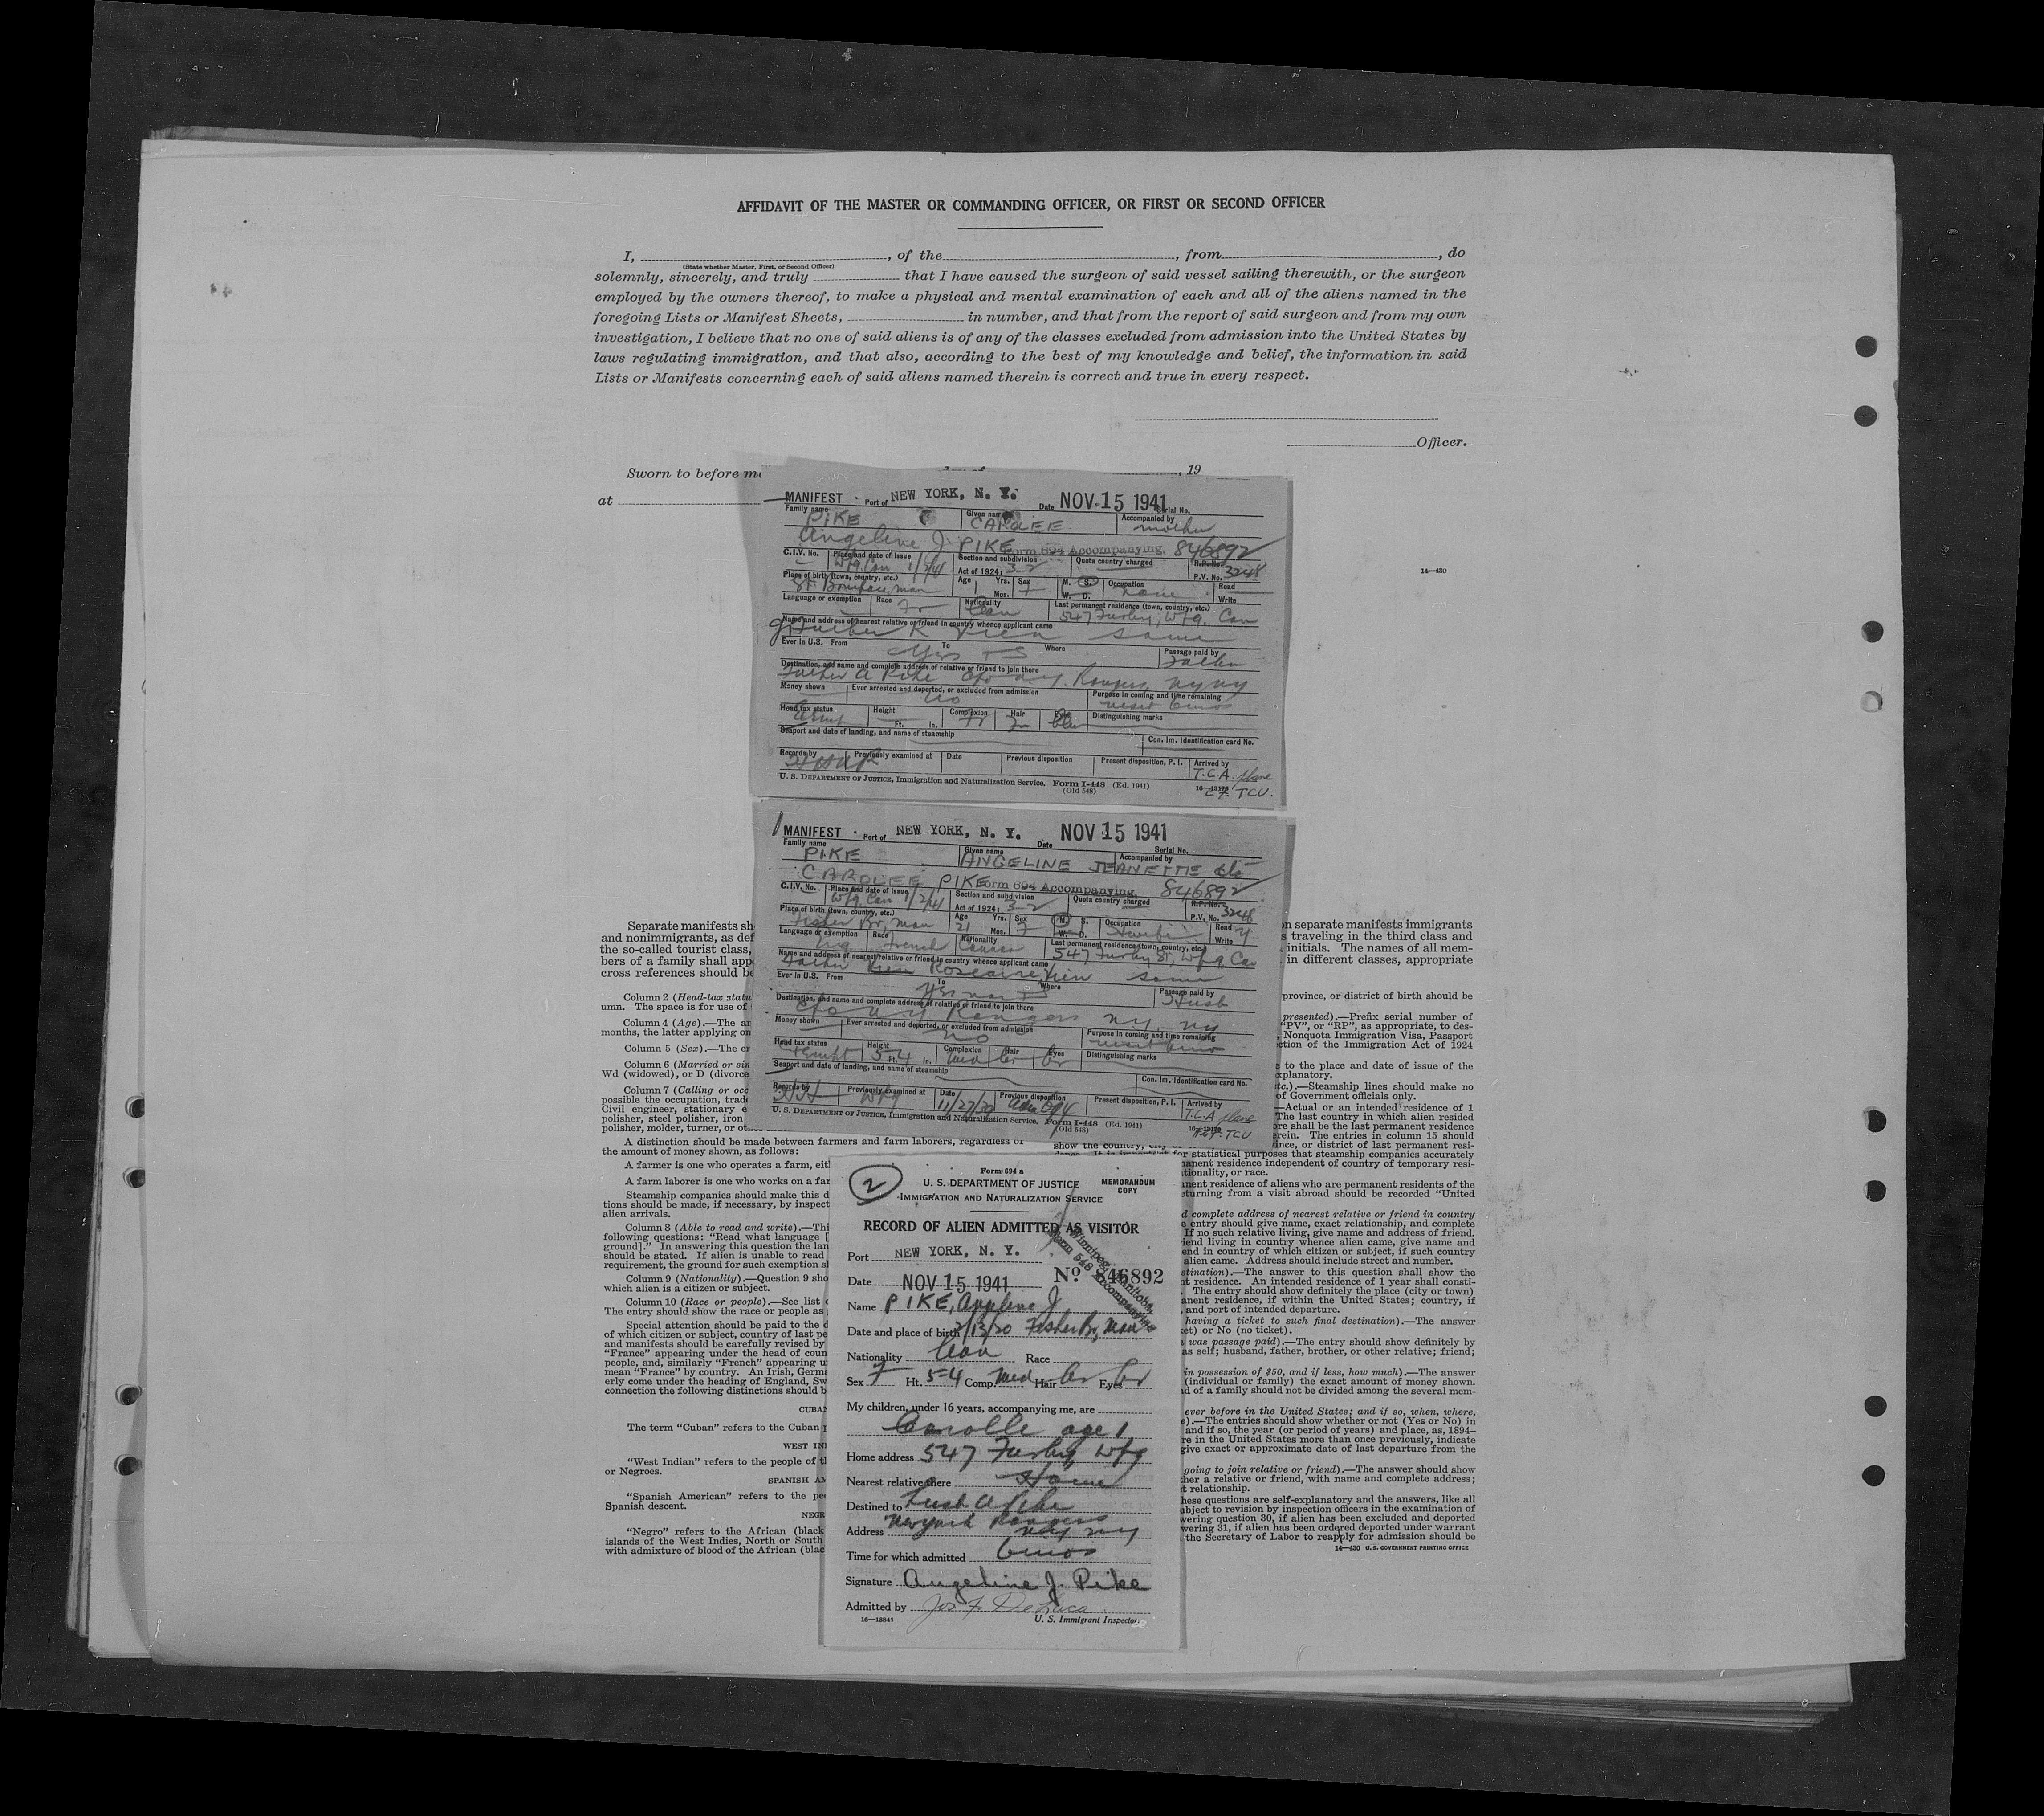 AFFIDAVIT OF THE MASTER OR COMMANDING OFFICER, OR FIRST OR SECOND OFFICER
I, , of the , from , do
(State whether Master, First, or Second Officer)
solemnly, sincerely, and truly that I have caused the surgeon of said vessel sailing therewith, or the surgeon
employed by the owners thereof, to make a physical and mental examination of each and all of the aliens named in the
foregoing Lists or Manifest Sheets, in number, and that from the report of said surgeon and from my own
investigation, I believe that no one of said aliens is of any of the classes excluded from admission into the United States by
laws regulating immigration, and that also, according to the best of my knowledge and belief, the information in said
Lists or Manifests concerning each of said aliens named therein is correct and true in every respect.
Officer.
Sworn to before me , 19
at
14—430
MANIFEST Port of NEW YORK, N. Y. Date NOV 15 1941 Serial No.
Family name PIKE Given name CAROLEE Accompanied by mother
Angeline J. PIKE Form 694 Accompanying. 846892
C.I.V. No. Place and date of issue Wpg. Can 1/2/41 Section and subdivision Act of 1924: 3-2 Quota country charged P.V. No. 3248
Place of birth (town, country, etc.) St. Boniface, man Age 1 Yrs. Mos. Sex F M. S. W. D. Occupation none Read Write
Language or exemption Race Fr Nationality Can Last permanent residence (town, country, etc.) 547 Furby, Wpg. Can
Name and address of nearest relative or friend in country whence applicant came
g father R Vien same
Ever in U.S. From To Where Passage paid by
Yes father
Destination, and name and complete address of relative or friend to join there
Father A Pike c/o N.Y. Rangers, NY NY
Money shown Ever arrested and deported, or excluded from admission No Purpose in coming and time remaining visit 6mos
Head tax status Height Ft. In. Complexion Fr Hair Eyes Blu Distinguishing marks
Seaport and date of landing, and name of steamship Con. Im. Identification card No.
Records by Previously examined at Date Previous disposition Present disposition, P. I. Arrived by T.C.A. plane
U. S. DEPARTMENT OF JUSTICE, Immigration and Naturalization Service. Form I-448 (Ed. 1941)
(Old 548) TCU.
MANIFEST Port of NEW YORK, N. Y. Date NOV 15 1941 Serial No.
Family name PIKE Given name ANGELINE JEANETTE Accompanied by
CAROLEE PIKE Form 694 Accompanying. 846892
C.I.V. No. Place and date of issue Wpg. Can 1/2/41 Section and subdivision Act of 1924: 3-2 Quota country charged P.V. No. 3248
Place of birth (town, country, etc.) Fisher Br, Man Age 21 Yrs. Mos. Sex F M. S. W. D. Occupation Read Y Write
Language or exemption Eng Race French Nationality Last permanent residence (town, country, etc.) 547 Furby St, Wpg, Can
Name and address of nearest relative or friend in country whence applicant came
father Vien same
Ever in U.S. From To Where Passage paid by
Yes Husb
Destination, and name and complete address of relative or friend to join there
c/o N.Y. Rangers NY, NY
Money shown Ever arrested and deported, or excluded from admission No Purpose in coming and time remaining visit 6mos
Head tax status Height 5 Ft. 4 In. Complexion Med Hair Br Eyes Br Distinguishing marks
Seaport and date of landing, and name of steamship Con. Im. Identification card No.
Records by Previously examined at Wpg Date 11/27/39 Previous disposition Present disposition, P. I. Arrived by T.C.A plane
U. S. DEPARTMENT OF JUSTICE, Immigration and Naturalization Service. Form I-448 (Ed. 1941)
(Old 548) TCU
2
Form 694 a
U. S. DEPARTMENT OF JUSTICE
MEMORANDUM COPY
IMMIGRATION AND NATURALIZATION SERVICE
RECORD OF ALIEN ADMITTED AS VISITOR
Winnipeg, Manitoba,
Form 548 Accompanying
Port NEW YORK, N. Y.
Date NOV 15 1941 No 846892
Name PIKE, J
Date and place of birth 2/13/20 Fisher Br, Man
Nationality Can Race
Sex F Ht. 5-4 Comp. Med Hair Br Eyes Br
My children, under 16 years, accompanying me, are
age 1
Home address 547 Furby, Wpg
Nearest relative there
Destined to Husb A Pike
Address New York Rangers
NY NY
Time for which admitted 6mos
Signature Angeline J. Pike
Admitted by Jos F. DeLuca
16—13841 U. S. Immigrant Inspector.
Separate manifests sh
and nonimmigrants, as def
the so-called tourist class,
bers of a family shall app
cross references should be
Column 2 (Head-tax statu
umn. The space is for use of
Column 4 (Age).—The a
months, the latter applying on
Column 5 (Sex).—The e
Column 6 (Married or sin
Wd (widowed), or D (divorce
Column 7 (Calling or occ
possible the occupation, trad
Civil engineer, stationary e
polisher, steel polisher, iron
polisher, molder, turner, or ot
A distinction should be made between farmers and farm laborers, regardless of
the amount of money shown, as follows:
A farmer is one who operates a farm, eit
A farm laborer is one who works on a fa
Steamship companies should make this d
tions should be made, if necessary, by inspect
alien arrivals.
Column 8 (Able to read and write).—Thi
following questions: "Read what language [
ground]." In answering this question the lan
should be stated. If alien is unable to read
requirement, the ground for such exemption s
Column 9 (Nationality).—Question 9 sho
which alien is a citizen or subject.
Column 10 (Race or people).—See list
The entry should show the race or people as
Special attention should be paid to the d
of which citizen or subject, country of last pe
and manifests should be carefully revised by
"France" appearing under the head of coun
people, and, similarly "French" appearing u
mean "France" by country. An Irish, Germ
erly come under the heading of England, Sw
connection the following distinctions should b
CUBA
The term "Cuban" refers to the Cuban
WEST IN
"West Indian" refers to the people of t
or Negroes.
SPANISH A
"Spanish American" refers to the pe
Spanish descent.
NEGR
"Negro" refers to the African (black
islands of the West Indies, North or South
with admixture of blood of the African (blac
n separate manifests immigrants
s traveling in the third class and
initials. The names of all mem-
in different classes, appropriate
province, or district of birth should be
presented).—Prefix serial number of
"PV", or "RP", as appropriate, to des-
, Nonquota Immigration Visa, Passport
ction of the Immigration Act of 1924
e to the place and date of issue of the
xplanatory.
etc.).—Steamship lines should make no
of Government officials only.
—Actual or an intended residence of 1
The last country in which alien resided
ore shall be the last permanent residence
rein. The entries in column 15 should
show the country, nce, or district of last permanent resi-
for statistical purposes that steamship companies accurately
anent residence independent of country of temporary resi-
tionality, or race.
anent residence of aliens who are permanent residents of the
eturning from a visit abroad should be recorded "United
d complete address of nearest relative or friend in country
e entry should give name, exact relationship, and complete
If no such relative living, give name and address of friend.
iend living in country whence alien came, give name and
end in country of which citizen or subject, if such country
alien came. Address should include street and number.
stination).—The answer to this question shall show the
t residence. An intended residence of 1 year shall consti-
The entry should show definitely the place (city or town)
anent residence, if within the United States; country, if
, and port of intended departure.
having a ticket to such final destination).—The answer
et) or No (no ticket).
was passage paid).—The entry should show definitely by
as self; husband, father, brother, or other relative; friend;
in possession of $50, and if less, how much).—The answer
(individual or family) the exact amount of money shown.
d of a family should not be divided among the several mem-
ever before in the United States; and if so, when, where,
).—The entries should show whether or not (Yes or No) in
and if so, the year (or period of years) and place, as, 1894–
re in the United States more than once previously, indicate
give exact or approximate date of last departure from the
going to join relative or friend).—The answer should show
her a relative or friend, with name and complete address;
t relationship.
hese questions are self-explanatory and the answers, like all
bject to revision by inspection officers in the examination of
wering question 30, if alien has been excluded and deported
wering 31, if alien has been ordered deported under warrant
the Secretary of Labor to reapply for admission should be
14—430 U. S. GOVERNMENT PRINTING OFFICE